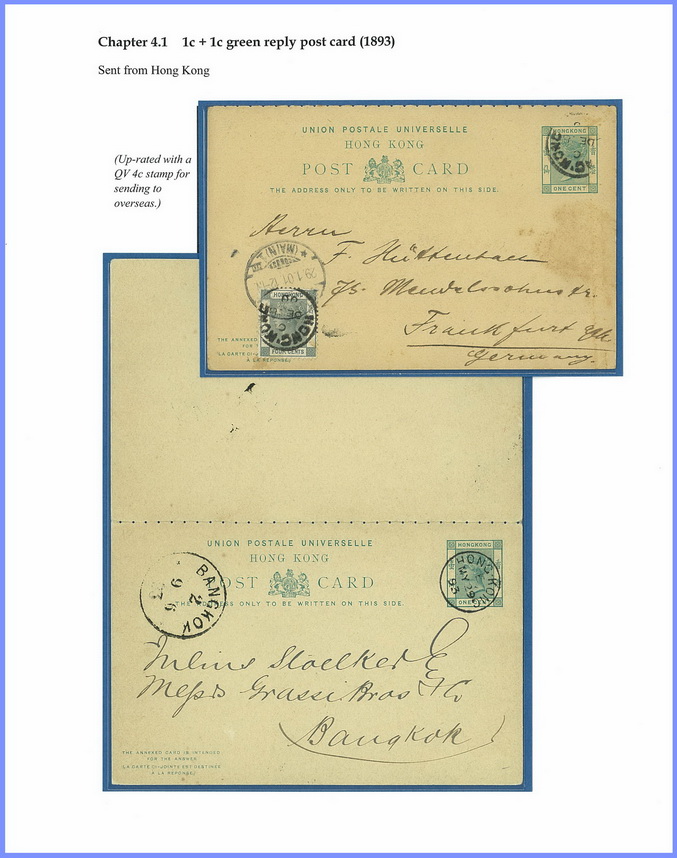 Chapter 4.1 1c + 1c green reply post card (1893)
Sent from Hong Kong
(Up-rated with a
QV 4c stamp for
sending to
overseas.)
UNION POSTALE UNIVERSELLE
HONG KONG
POST CARD
THE ADDRESS ONLY TO BE WRITTEN ON THIS SIDE.
HONGKONG
ONE CENT
HONG·KONG
DE
Herrn
F. Hüttenbach
Mendelssohnstr.
Frankfurt
Germany.
(MAIN)
29.1.01
HONGKONG
HONG·KONG
DE
FOUR CENTS
THE ANNEXED
FOR
LA CARTE CI-
À LA RÉPONSE
UNION POSTALE UNIVERSELLE
HONG KONG
POST CARD
THE ADDRESS ONLY TO BE WRITTEN ON THIS SIDE.
HONGKONG
ONE CENT
HONG KONG
MY 29
93
BANGKOK
2
9
6
Julius Stoelker E
Messrs Grassi Bros & Co
Bangkok
THE ANNEXED CARD IS INTENDED
FOR THE ANSWER
LA CARTE CI-JOINTE EST DESTINÉE
À LA RÉPONSE